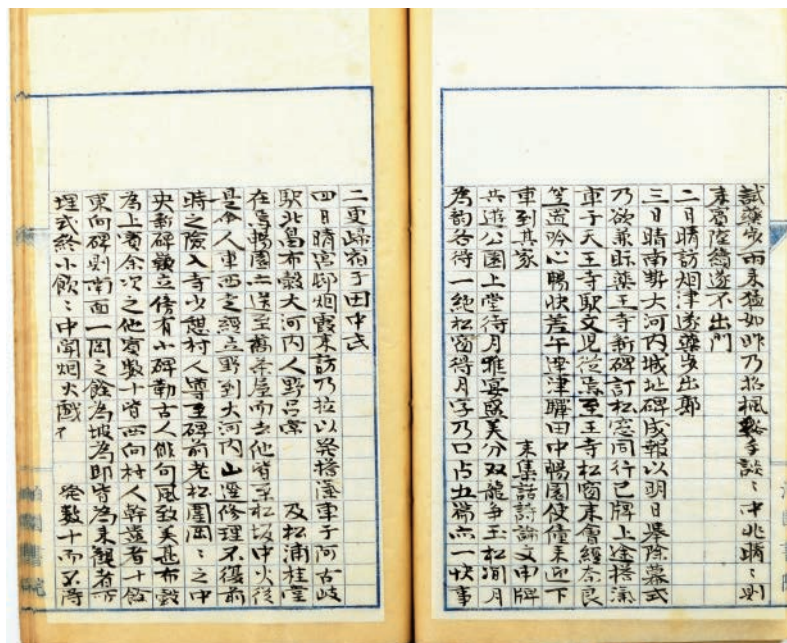 試藥步雨来猛如昨乃招楓谿手談〻中兆晴〻則
来賓陸續遂不出門
二日晴訪烟津遂藥步出郭
三日晴南勢大河内城址碑成報以明日舉除幕式
乃欲兼眎薬王寺新碑訂松窓同行已牌上途搭滊
車于天王寺駅文児從焉至王寺松窗来會經奈良
笠置吟心暢快午津驛田中暢園使僮来迎下
車到其家 来集話詩論文申牌
共遊公園上堂待月雅宴盛美分双龍争玉松間月
為韵各得一絶松窗得月字乃口占五篇亦一快事
二更歸宿于田中氏
四日晴寧邨烟霞来訪乃拉以発搭滊車于阿古岐
駅北畠布穀大河内人野呂常 及松浦桂堂
在焉暢園亦送至高茶屋而去他皆至松坂中火後
是命人車西走經立野到大河内山逕修理不復前
時之險入寺少憩村人導至碑前老松圍岡〻之中
央新碑巍立傍有小碑勒古人俳句風致美甚布穀
為上賓余次之他賓數十皆西向村人斡旋者十餘
東向碑則南面一岡之餘為坡為皆為来觀者所
埋式終小飲〻中聞烟火戲 発数十而不得